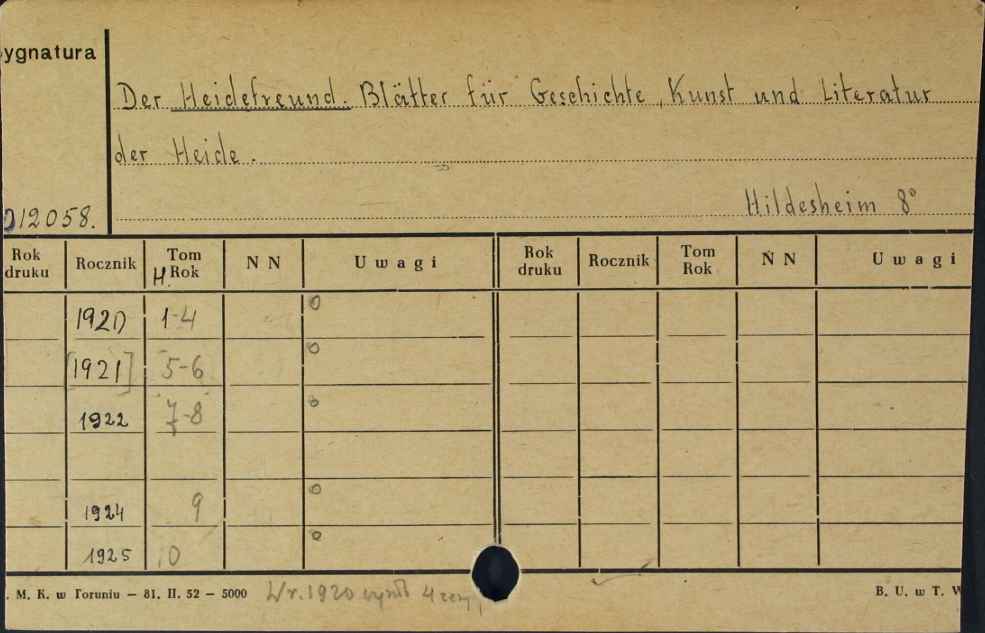 ygnatura
Der Heidefreund. Blätter für Geschichte, Kunst und Literatur
der Heide.
012058.
Hildesheim 8°
Rok druku Rocznik Tom H. Rok N N Uwagi Rok druku Rocznik Tom Rok N N Uwagi
1920 1-4 0
[1921] 5-6 0
1922 7-8 0
1924 9 0
1925 10 0
. M. K. w Toruniu — 81. II. 52 — 5000
W r. 1920 4
B. U. w T. W